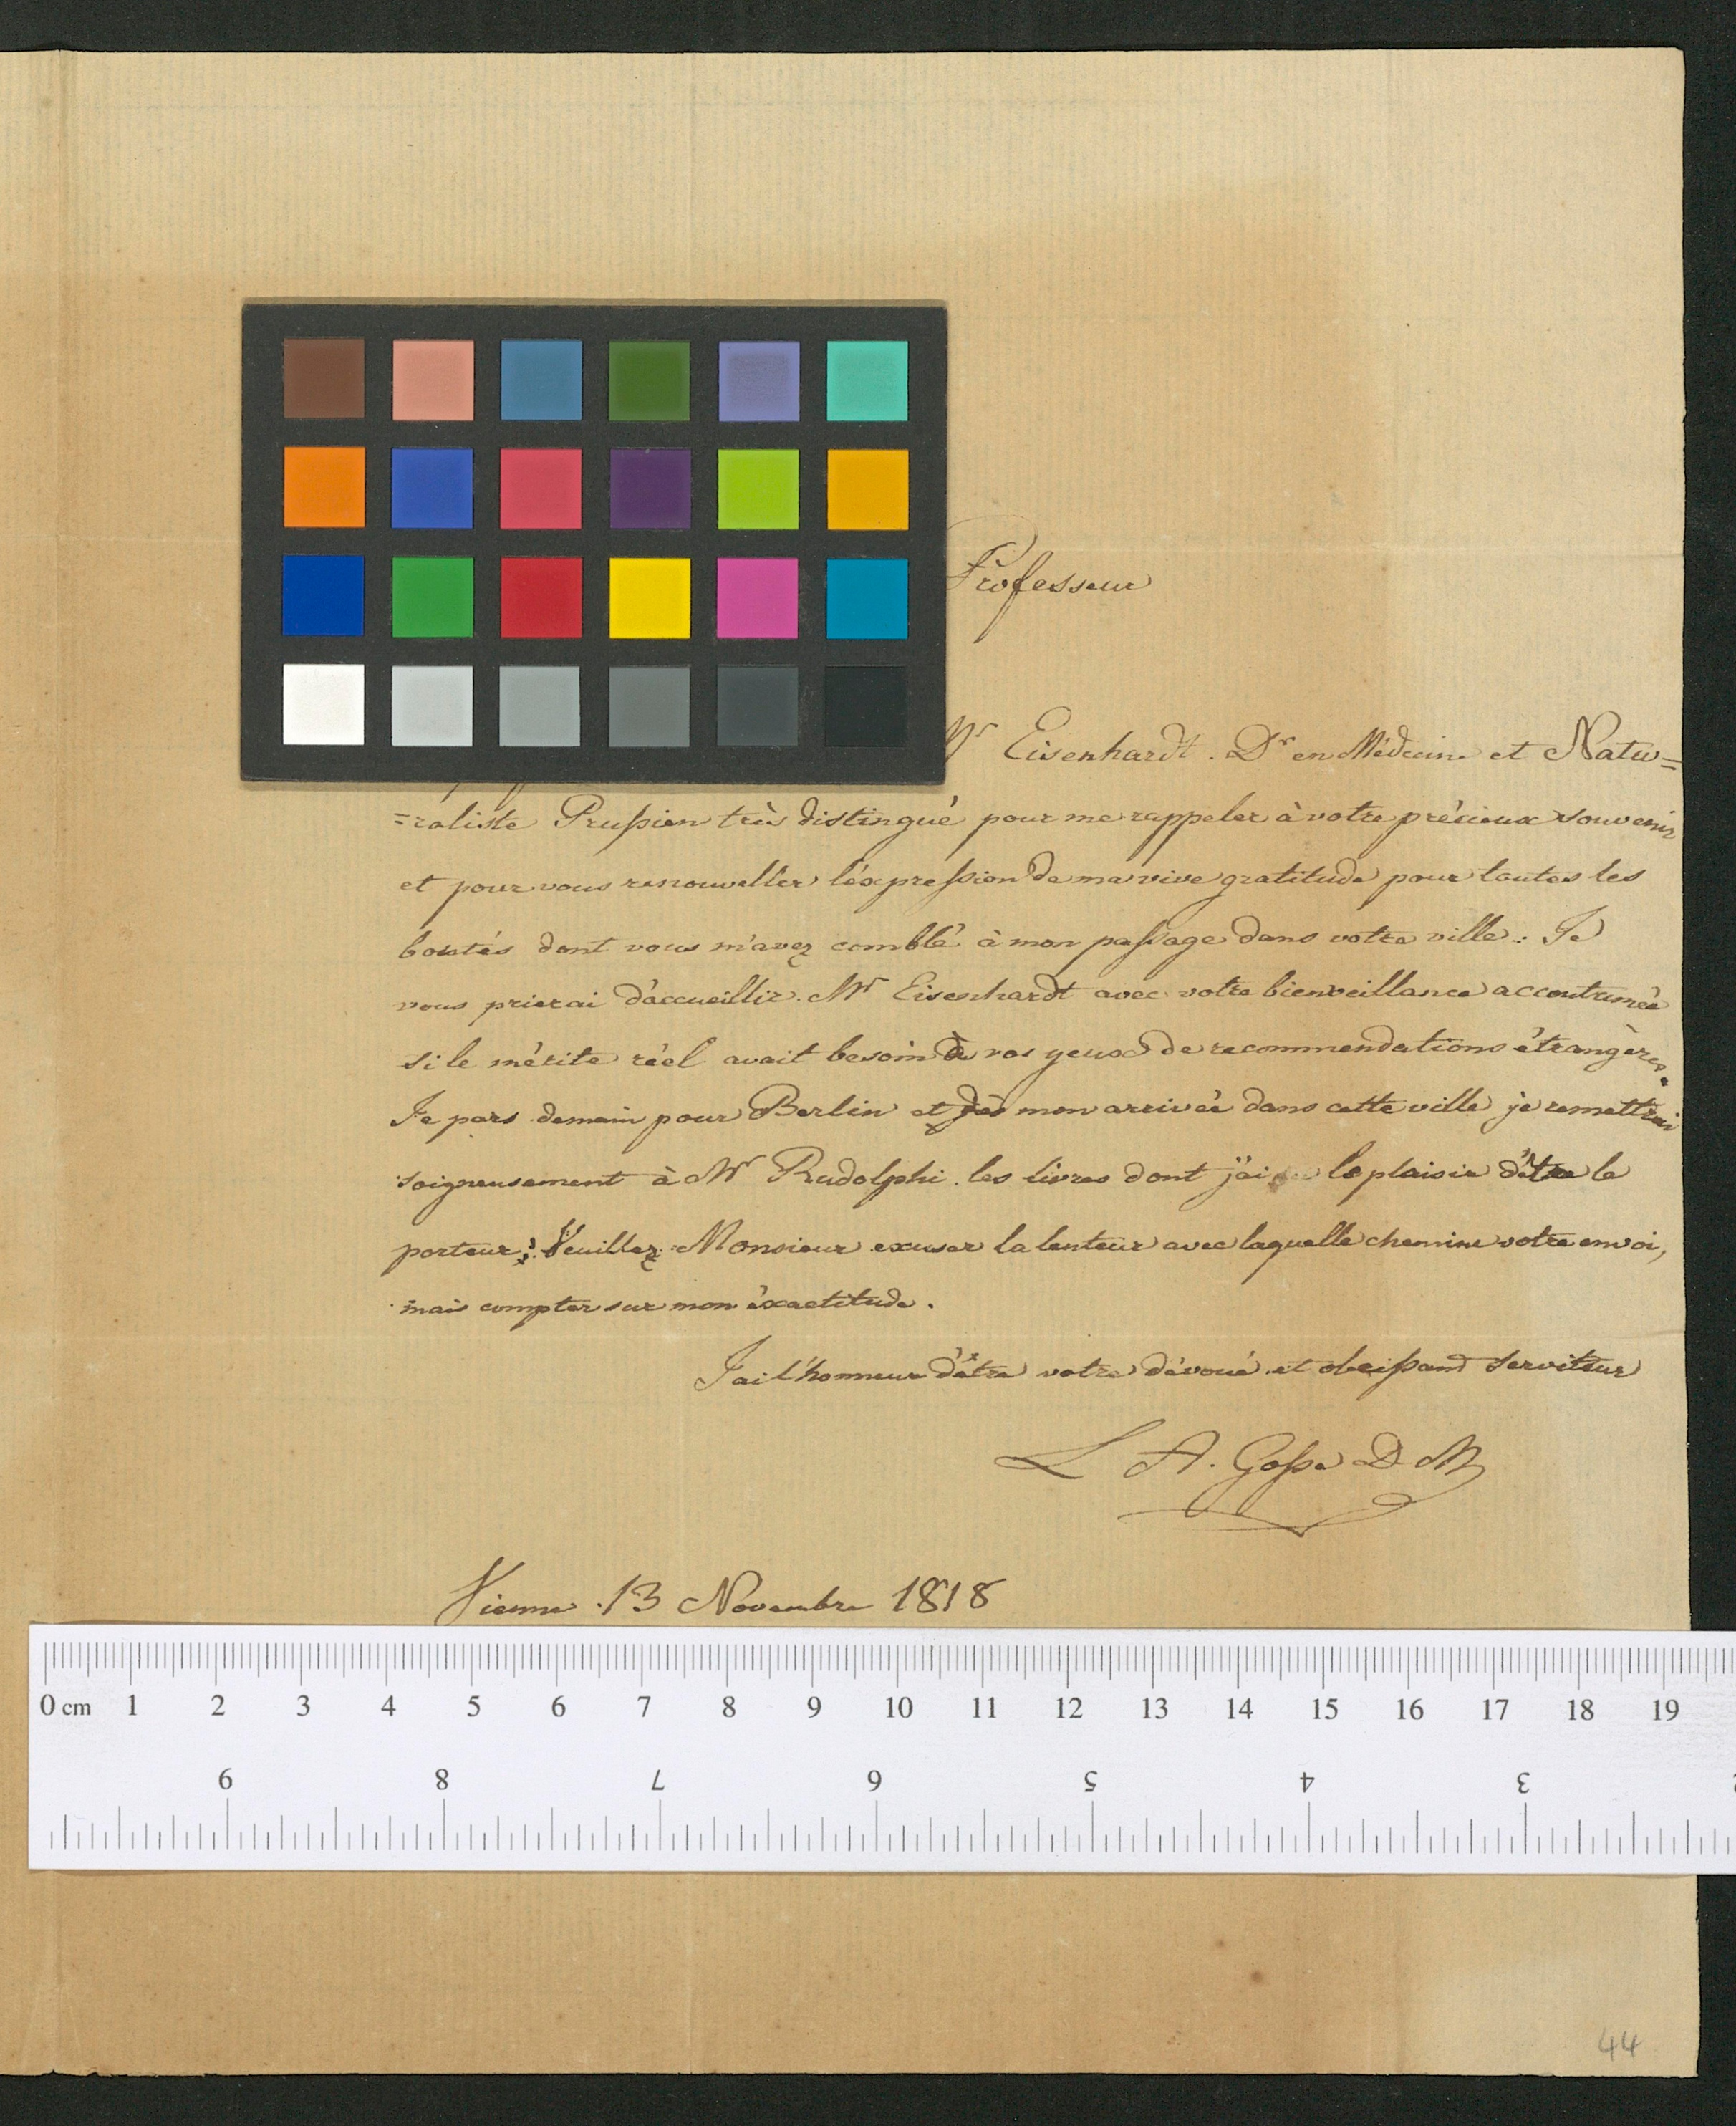 Professeur
Mr Eisenhardt. Dr en Médecine et Natu=
=raliste Prussien très distingué pour me rappeler à votre précieux souvenir
et pour vous renouveller l'éxpression de ma vive gratitude pour toutes les
bontés dont vous m'avez comblé à mon passage dans votre ville : Je
vous prierai d'accueillir Mr Eisenhardt avec votre bienveillance accoutumée
si le mérite réel avait besoin à vos yeux de recommendations étrangères.
Je pars demain pour Berlin et dès mon arrivée dans cette ville je remettrai
soigneusement à Mr Rudolphi les livres dont j'ai le plaisir d'être le
porteur; Veuillez Monsieur excuser la lenteur avec laquelle chemine votre envoi,
mais compter sur mon éxactitude.
J'ai l'honneur d'être votre dévoué et obeissant serviteur
L A. Gosse D M
Vienne 13 Novembre 1818
0 cm 1 2 3 4 5 6 7 8 9 10 11 12 13 14 15 16 17 18 19
9 8 7 6 5 4 3
44